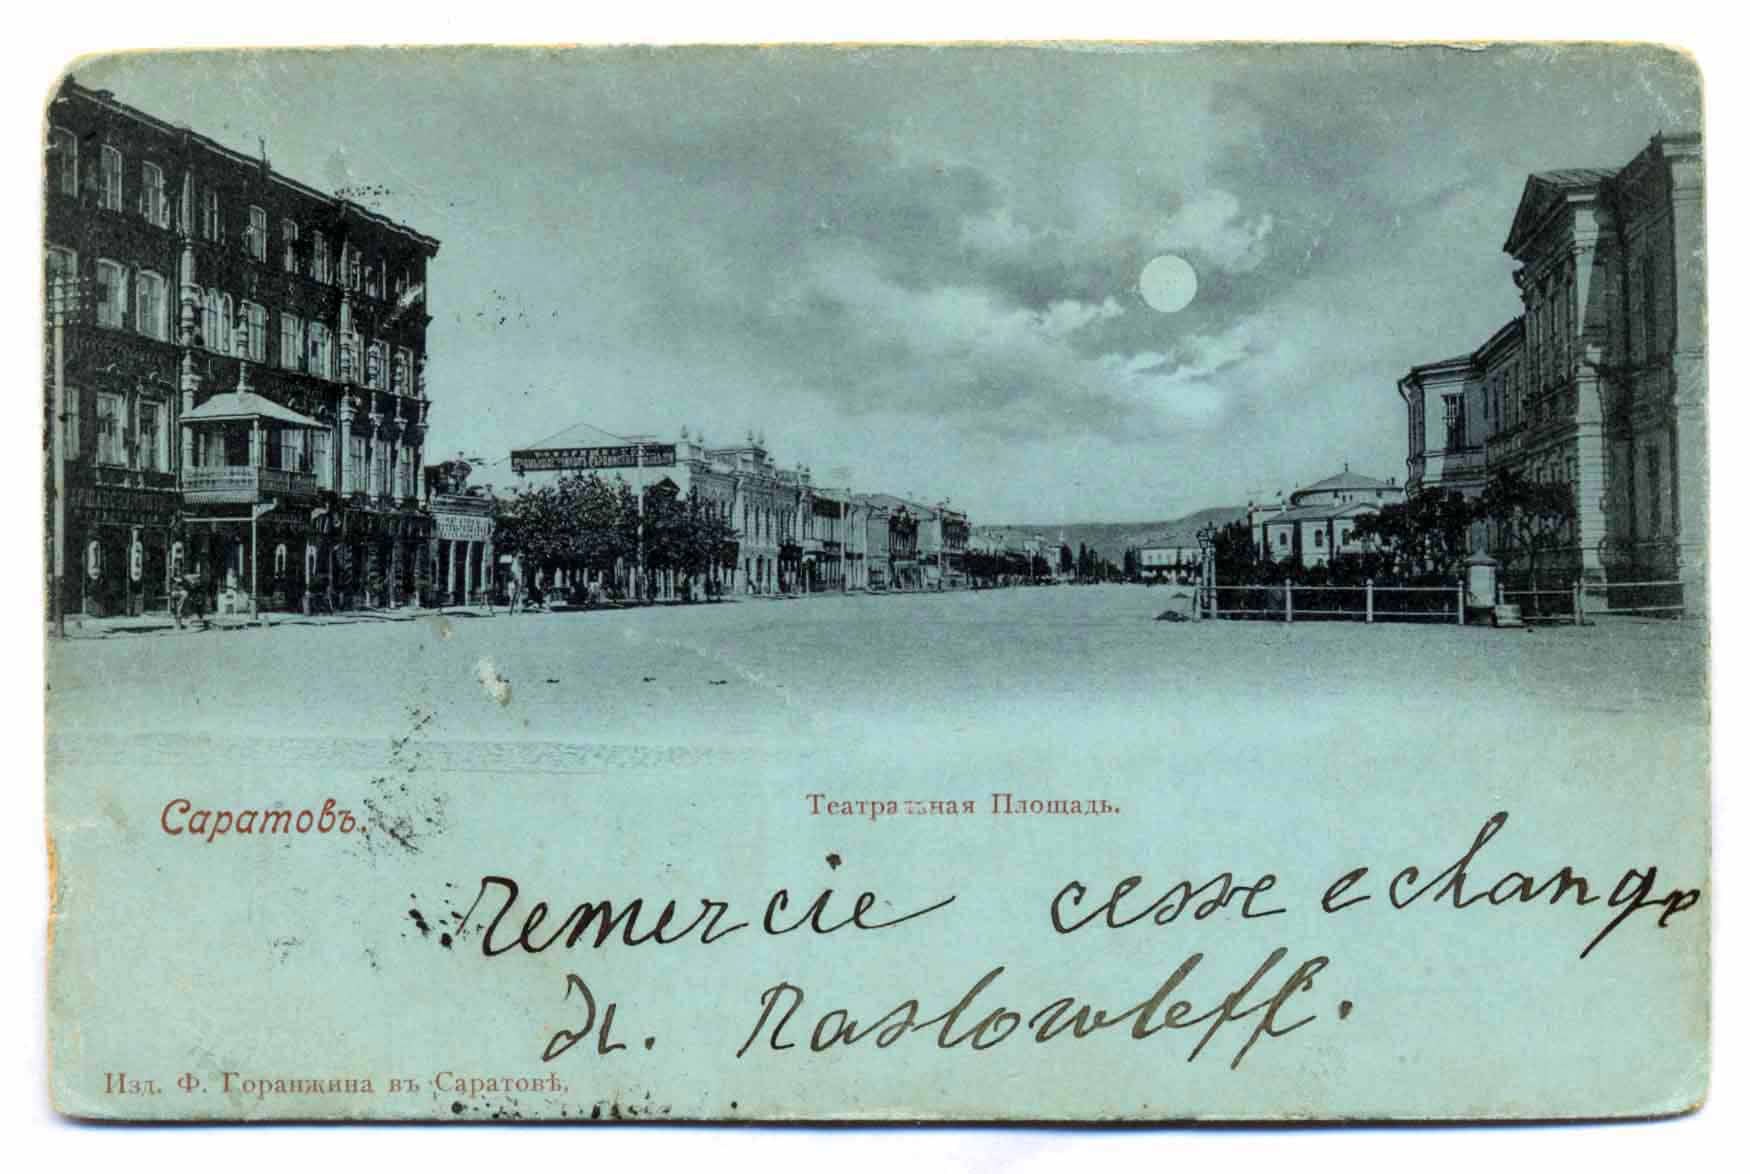 Саратовъ.
Театральная Площадь.
remercie cesse echange
N. Maslowleff.
Изд. Ф. Горанжина въ Саратовѣ.